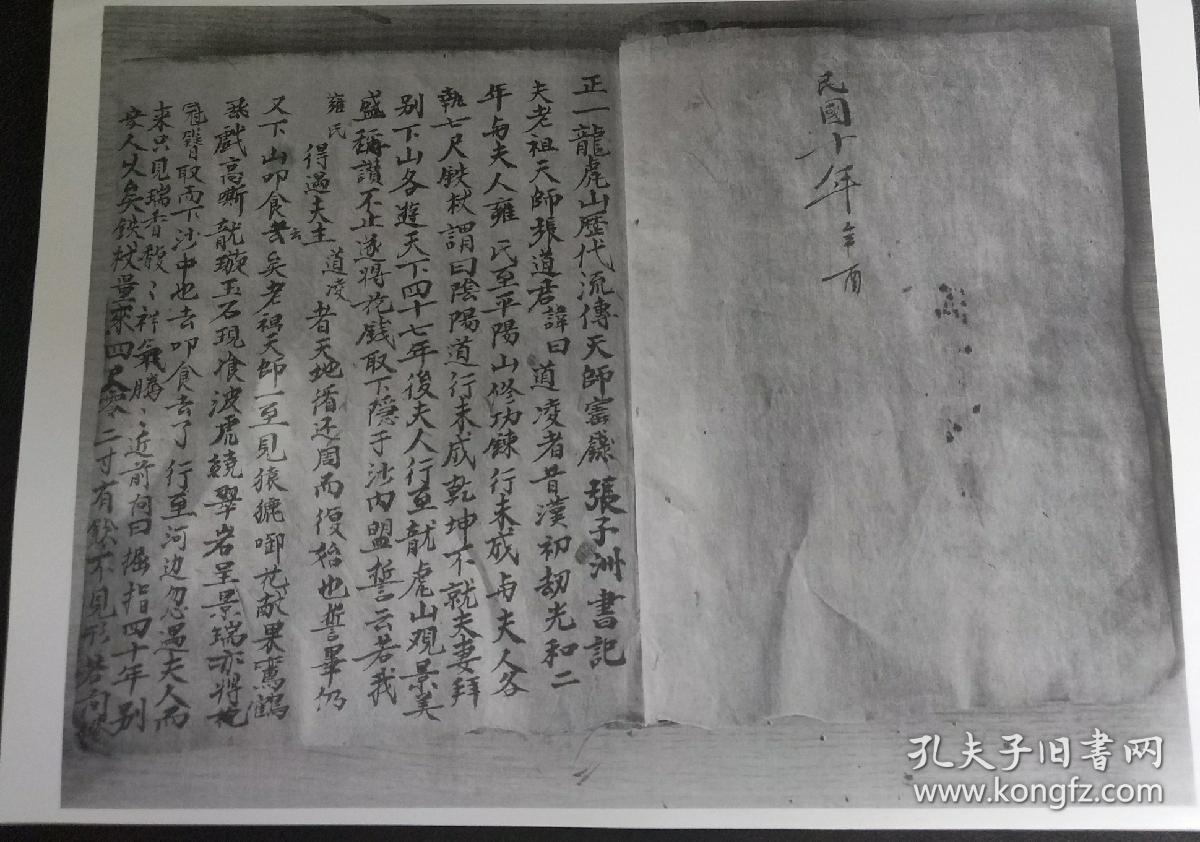 民國十年辛酉
正一龍虎山歷代流傳天師密籙 張子洲書記
夫老祖天師張道君諱曰道凌者昔漢初劫光和二
年与夫人雍氏至平陽山修功鍊行未成与夫人各
執七尺鉄杖謂曰陰陽道行未成乾坤不就夫妻拜
別下山各遊天下四十七年後夫人行至龍虎山观景美
盛稱讃不止遂将花戗取下隠于沙内盟誓云若我
雍氏得遇夫主道凌者天地循还周而復始也誓畢仍
又下山叩食去矣老祖天師一至見猿猿啣花献果鸞鶴
戲高嘶龍璇玉石現飡波虎繞翠岩呈景瑞亦将花
冠簪取而下沙中也去叩食去了行至河边忽遇夫人而
来只見瑞香馥〻祥氣騰〻近前问曰掘指四十年别
夫人久矣鉄杖量来四尺零二寸有餘不見形若何
孔夫子旧書网
www.kongfz.com